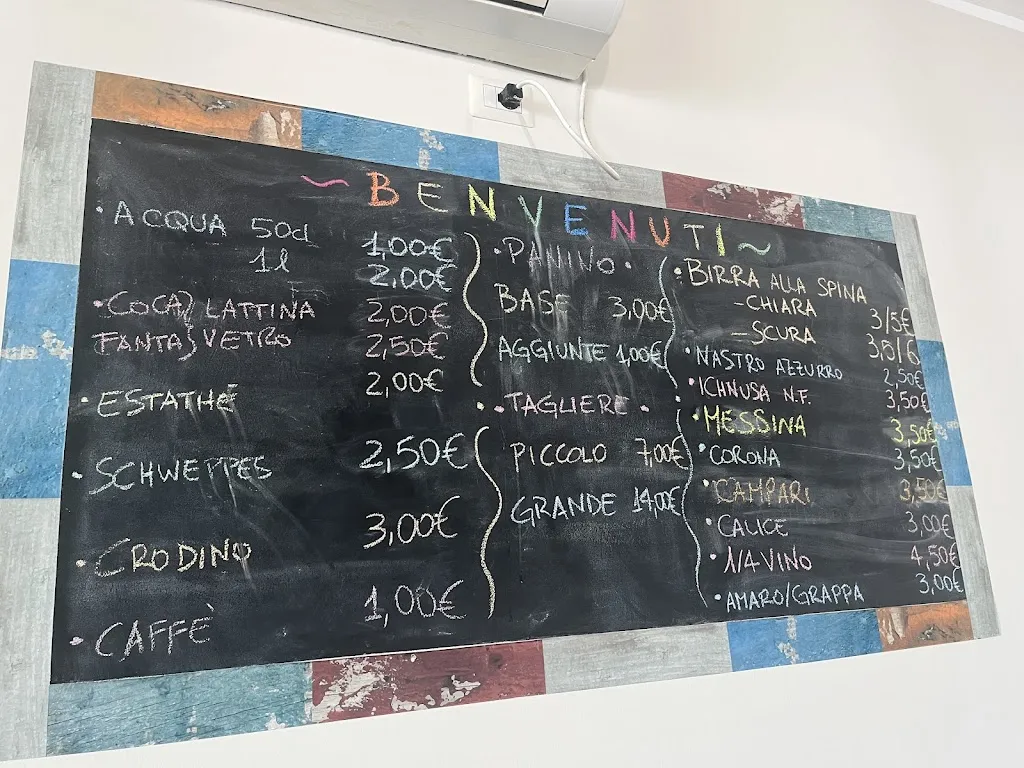 ~ BENVENUTI ~
• ACQUA 50cl 1,00€
1l 2,00€
• COCA } LATTINA 2,00€
FANTA } VETRO 2,50€
• ESTATHÉ 2,00€
• SCHWEPPES 2,50€
• CRODINO 3,00€
• CAFFÈ 1,00€
• PANINO •
BASE 3,00€
AGGIUNTE 1,00€
• TAGLIERE •
PICCOLO 7,00€
GRANDE 14,00€
• BIRRA ALLA SPINA
- CHIARA 3/5€
- SCURA 3,5/6
• NASTRO AZZURRO 2,50€
• ICHNUSA N.F. 3,50€
• MESSINA 3,50€
• CORONA 3,50€
• CAMPARI 3,50€
• CALICE 3,00€
• 1/4 VINO 4,50€
• AMARO/GRAPPA 3,00€